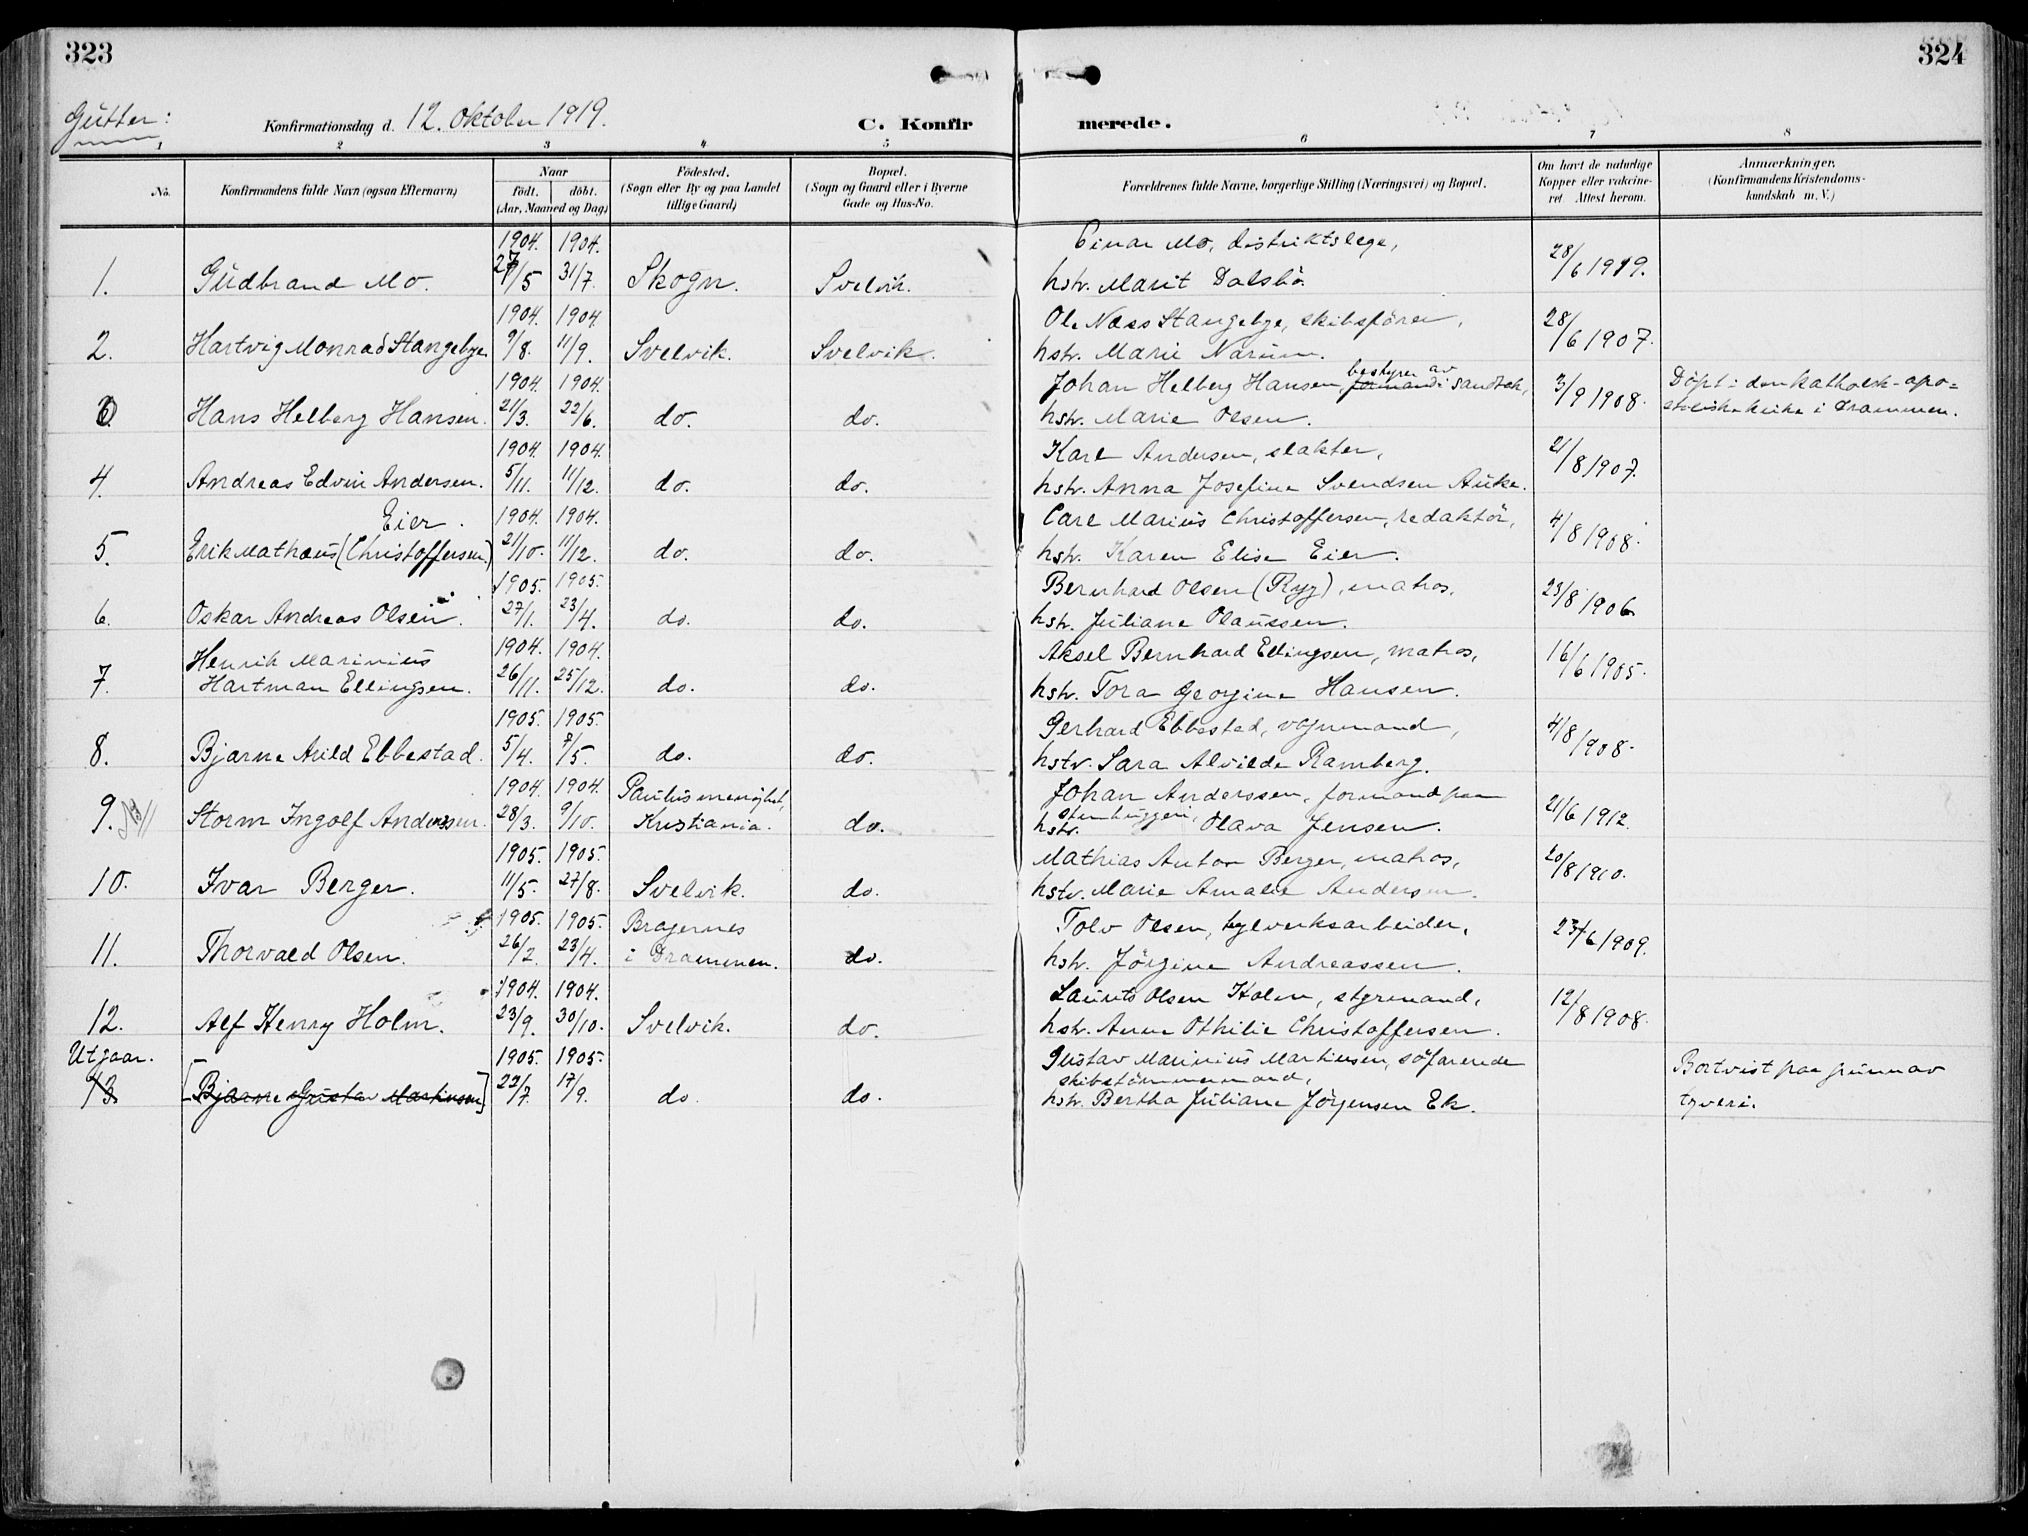 323
324
Gutter:
Konfirmationsdag d. 12. Oktober 1919.
C. Konfir
merede.
1 2 3 4 5 6 7 8
No.
Konfirmandens fulde Navn (ogsaa Efternavn)
Naar
födt. döbt.
(Aar, Maaned og Dag)
Födested.
(Sogn eller By og paa Landet
tillige Gaard)
Bopæl.
(Sogn og Gaard eller i Byerne
Gade og Hus-No.
Forældrenes fulde Navne, borgerlige Stilling (Næringsvei) og Bopæl.
Om havt de naturlige
Kopper eller vakcine-
ret. Attest herom.
Anmærkninger.
(Konfirmandens Kristendoms-
kundskab m. V.)
1904. 1904. Einar Mo, distriktslege,
1. Gudbrand Mo. 27/5 31/7. Skogn. Svelvik. hstr. Marit Dalsbö. 28/6 1919.
1904. 1904. Ole Næss Stangebye, skibsförer,
2. Hartvig Monrad Stangebye. 9/8. 11/9. Svelvik. Svelvik. hstr. Marie Narum. 28/6 1907.
1904. 1904. Johan Helberg Hansen, bestyrer av formand i sandtak,
Hans Helberg Hansen. 21/3. 22/6. do. do. hstr. Marie Olsen. 3/9 1908. Döpt i den katholsk-apo=
stoliske kirke i Drammen.
1904. 1904. Karl Andersen, slakter,
4. Andreas Edvin Andersen. 5/11. 11/12. do. do. hstr. Anna Josefine Svendsen Auke. 21/8 1907.
Eier. 1904. 1904. Carl Marius Christoffersen, redaktör,
5. Erik Mathæus (Christoffersen) 21/10. 11/12. do. do. hstr. Karen Elise Eier. 4/8 1908.
1905. 1905. Bernhard Olsen (Ryg), matros,
6. Oskar Andreas Olsen. 27/1. 23/4. do. do. hstr. Juliane Olaussen. 23/8 1906.
Henrik Marinius 1904. 1904. Aksel Bernhard Ellingsen, matros,
7. Hartman Ellingsen. 26/11. 25/12. do. do. hstr. Tora Georgine Hansen. 16/6 1905.
1905. 1905. Gerhard Ebbestad, vognmand,
8. Bjarne Arild Ebbestad. 5/4. 7/5. do. do. hstr. Sara Alvilde Ramberg. 4/8 1908.
1904. 1904. Paulus menighet, Johan Anderssen, formand paa
9. Storm Ingolf Anderssen. 28/3. 9/10. Kristiania. do. stenhuggeri, hstr. Olava Jensen. 21/6 1912.
1905. 1905. Mathias Anton Berger, matros,
10. Ivar Berger. 11/5. 27/8. Svelvik. do. hstr. Marie Amalie Andersen. 20/8 1910.
1905. 1905. Bragernes Tolv Olsen, tylverksarbeider,
11. Thorvald Olsen. 26/2. 23/4. i Drammen. do. hstr. Jörgine Andreassen. 23/6 1909.
1904. 1904. Laurits Olsen Holm, styrmand,
12. Alf Henry Holm. 23/9. 30/10. Svelvik. do. hstr. Anne Othilie Christoffersen. 12/8 1908.
Utgaar. 1905. 1905. Gustav Marinius Martinsen, söfarende
skibstömmermand,
13. [Bjarne Gustav Martinsen] 22/7. 17/9. do. do. hstr. Bertha Juliane Jörgensen Ek. Bortvist paa grunn av
tyveri.